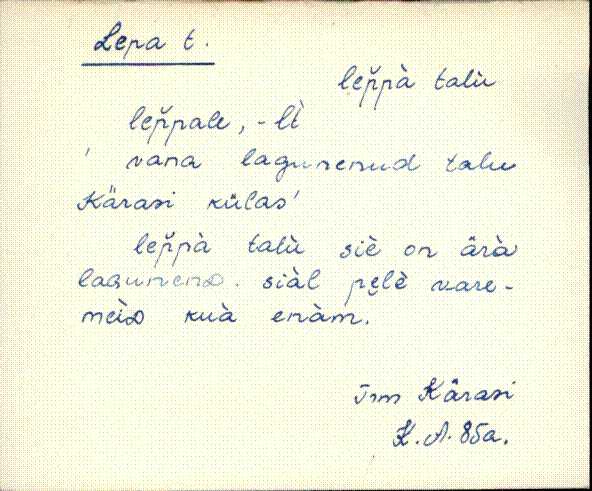 Lepa t.
lep̆pà talù
lep̆pale, -lt̀
' vana lagunenud talu
Kärasi külas'
lep̆pà talù siè on ärà
lagunenD. siàl pe̮lè vare-
meìD kuà enàm.
Jm m Kärasi
K. A. 85a.